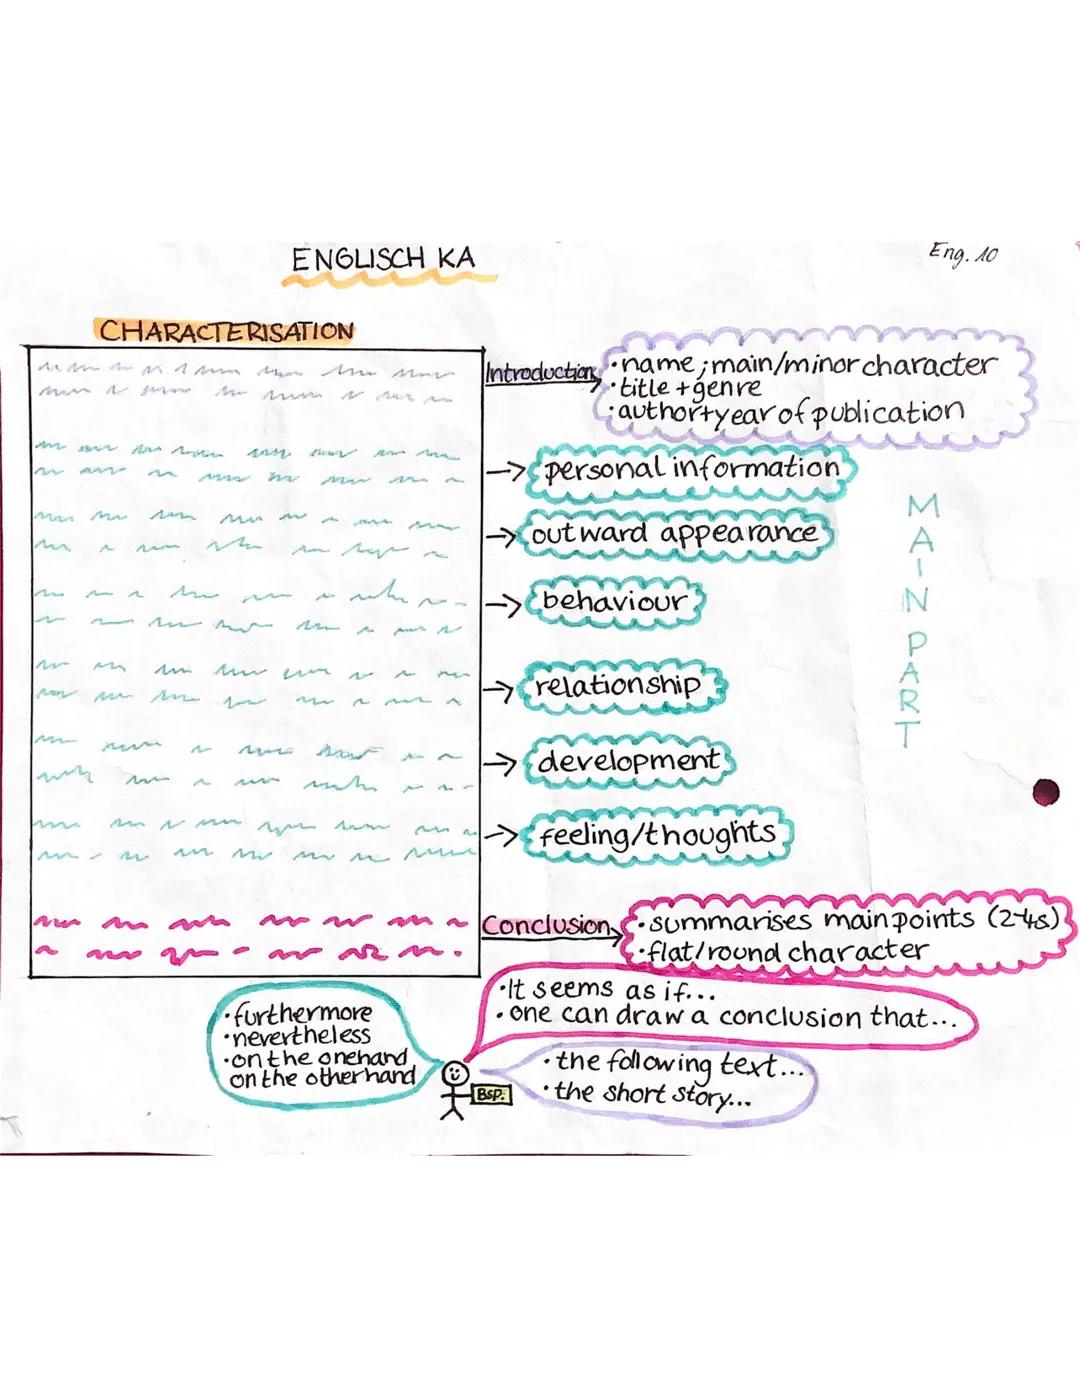 ENGLISCH KA
Eng. 10
CHARACTERISATION
Introduction
·name; main/minor character
·title + genre
·author+year of publication
→ personal information
→ outward appearance
→ behaviour
→ relationship
→ development
→ feeling/thoughts
MAIN PART
Conclusion
·summarises main points (2-4s)
·flat/round character
·It seems as if...
·one can draw a conclusion that...
·furthermore
·nevertheless
·on the onehand
on the otherhand
Bsp.
·the following text...
·the short story...